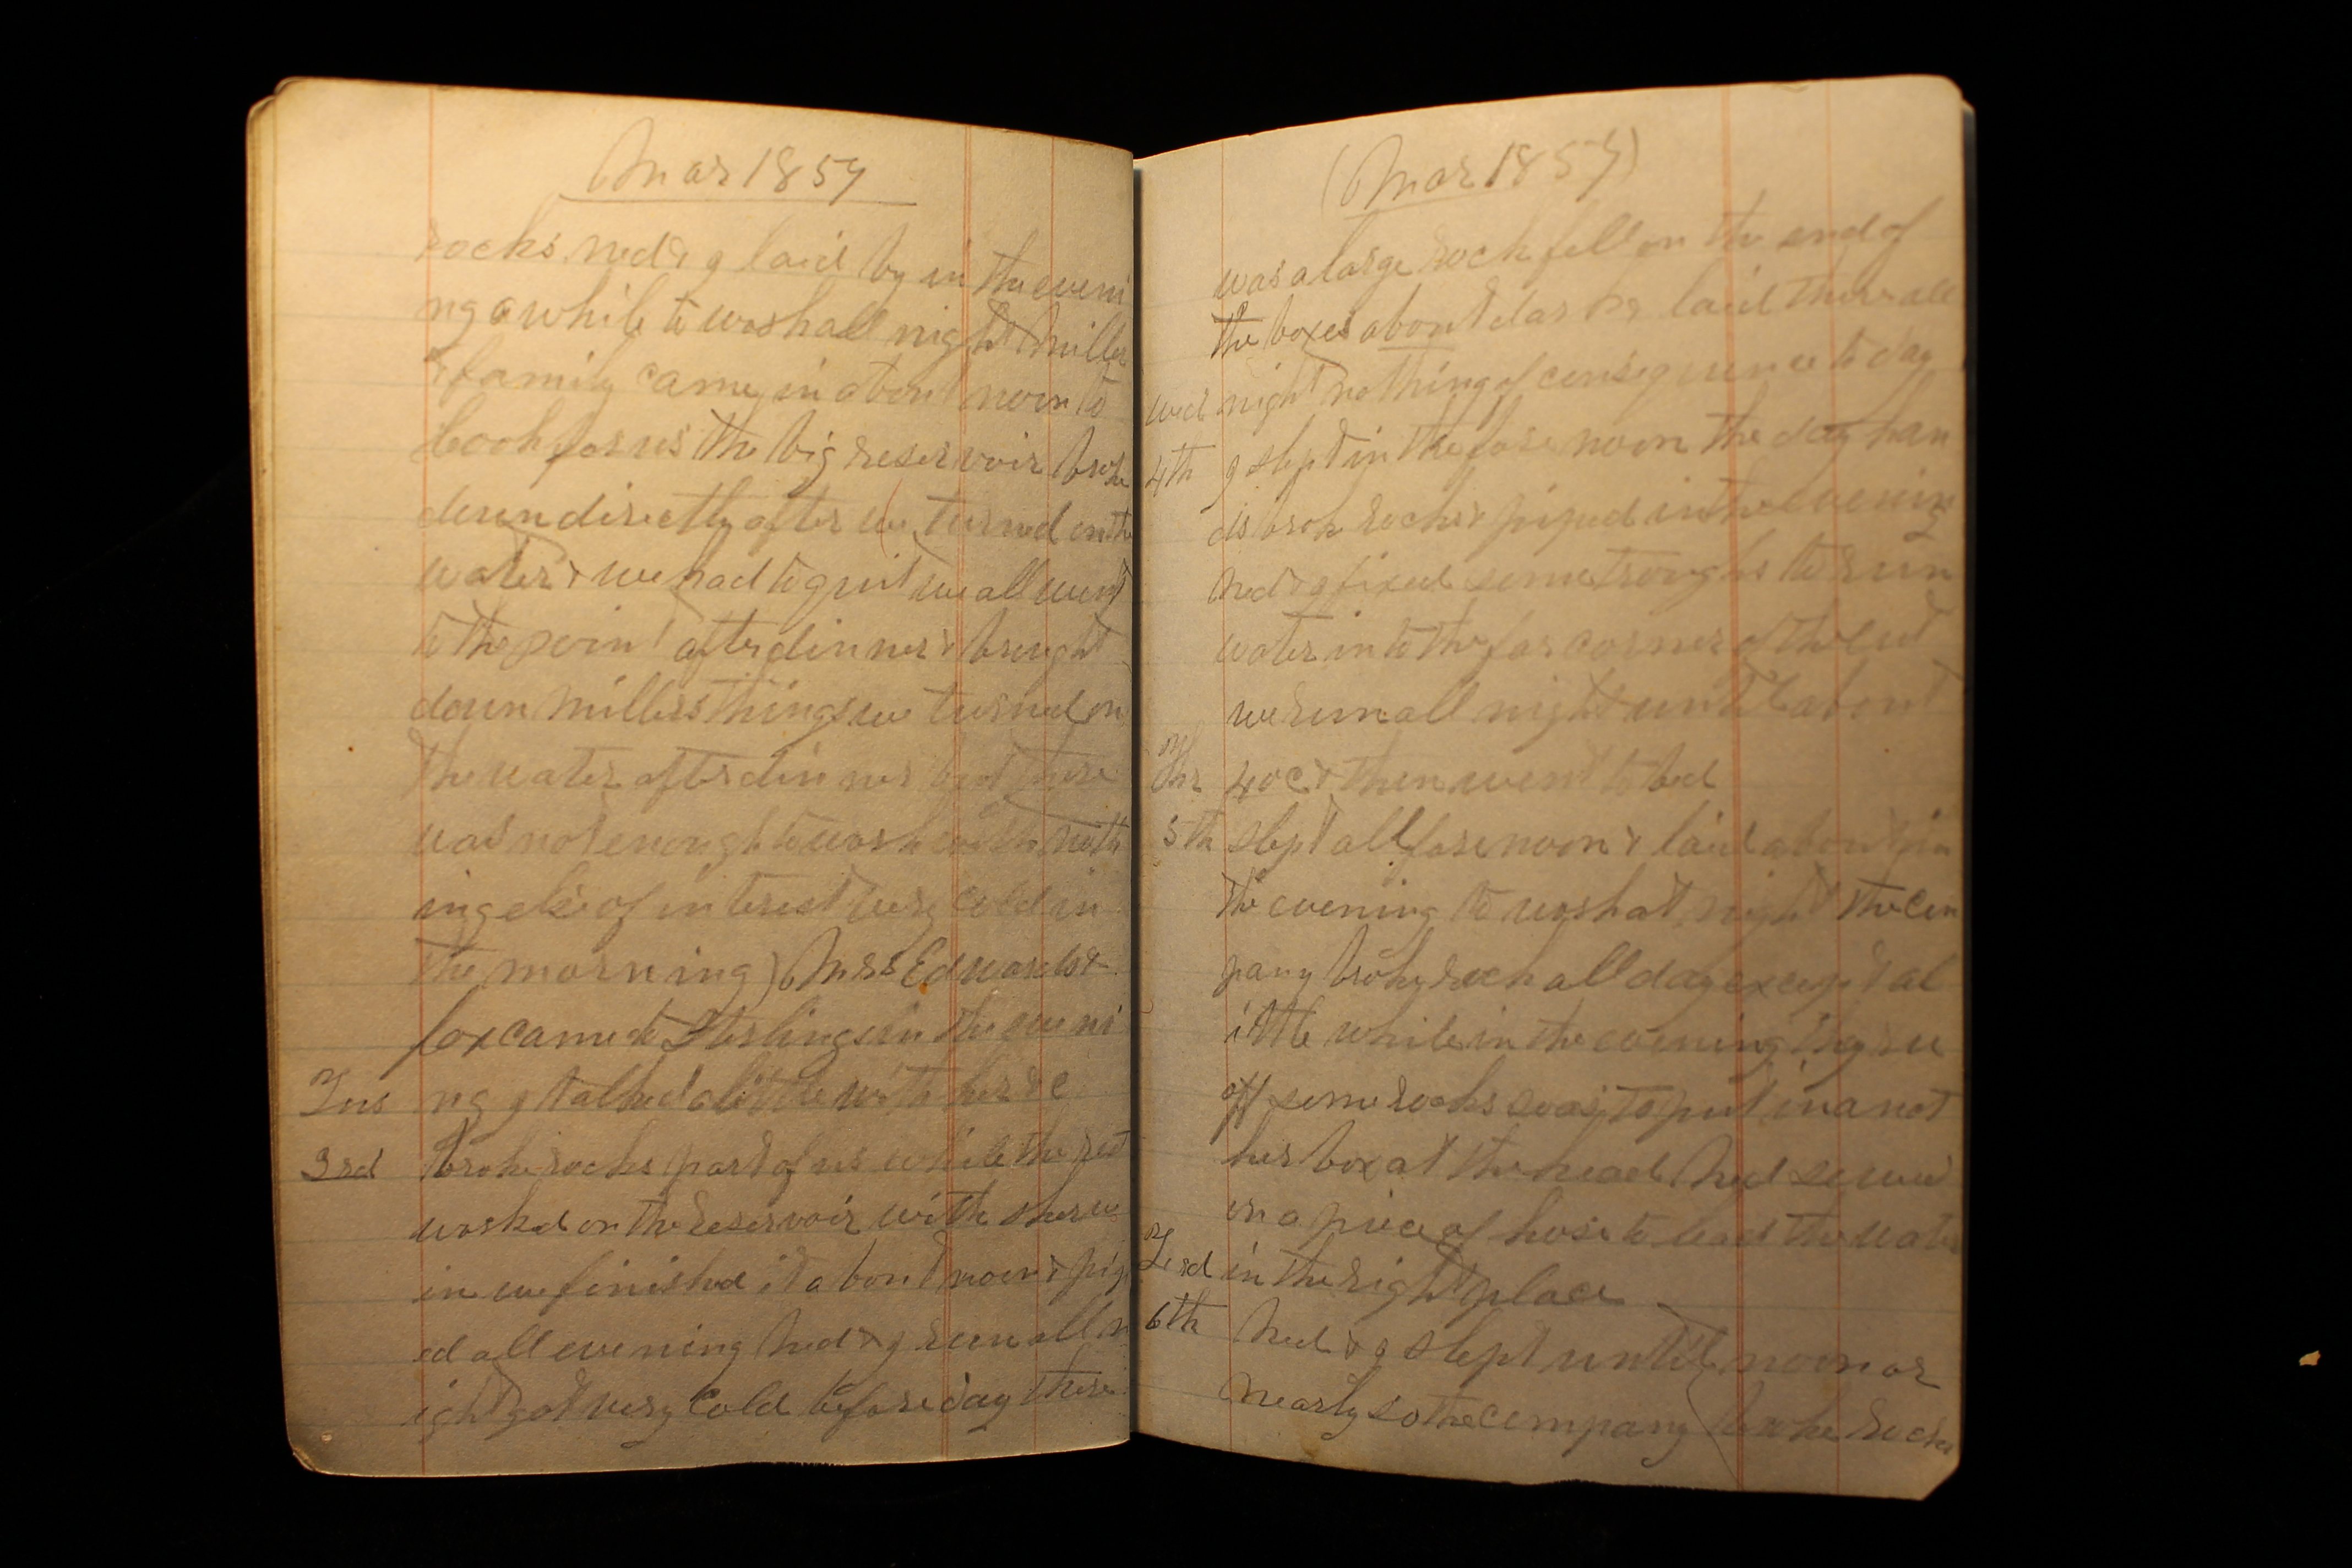 Mar 1857
rocks Ned & I laid by in the eveni
ng awhile to work all night Miller
& family came in about noon to
Cook for us the big reservoir broke
down directly after we turned on the
water & we had to quit we all went
to the point after dinner & brought
down Millers things we turned on
the water after dinner but there
was not enough to work with noth
ing else of interest very cold in
the morning) Mrs Edwards &
fox came to Sterlings in the eveni
Tus ng I talked a little with her &c
3rd broke rocks part of us while the rest
worked on the reservoir with
in we finished it about noon & pip
ed all evening Ned & I run all n
ight got very Cold before day there
(Mar 1857)
was a large rock fell on the end of
the boxes about dark & laid there all
Wed night nothing of consequence to day
4th I slept in the fore noon the day han
ds brok rocks & piped in the evening
Ned & I fixed some troughs to run
water in to the far corner of the cut
we run all night until about
Thr 4 oc & then went to bed
5th slept all fore noon & laid about in
the evening to work at night the com
pany broke rock all day except a l
ittle while in the evening they ru
off some rocks so as to put in a not
her box at the head Ned sewed
on a piece of hose to lead the water
in the right place
6th Ned & I slept until noon or
nearly so the company broke rocks